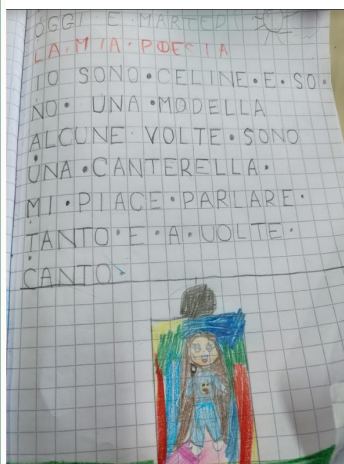 OGGI E MARTEDI
LA•MIA•POESIA
IO SONO•CELINE•E•SO
NO• UNA•MODELLA
ALCUNE VOLTE•SONO
UNA•CANTERELLA•
MI•PIACE•PARLARE•
TANTO•E•A•VOLTE•
CANTO